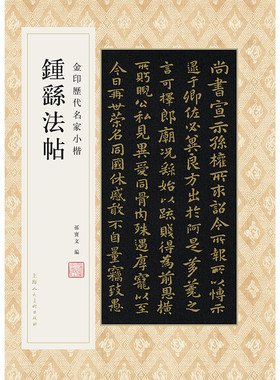 尚書宣示孫權所求詔令所報所以博示
逮于卿佐必冀良方出於阿是芻蕘之
言可擇郎廟況繇始以疏賤得為前恩橫
所眄公私見異愛同骨肉殊遇厚寵以至
今日再世榮名同國休慼敢不自量竊致愚
金印歷代名家小楷
鍾繇法帖
孫寶文 編
上海人民美術出版社